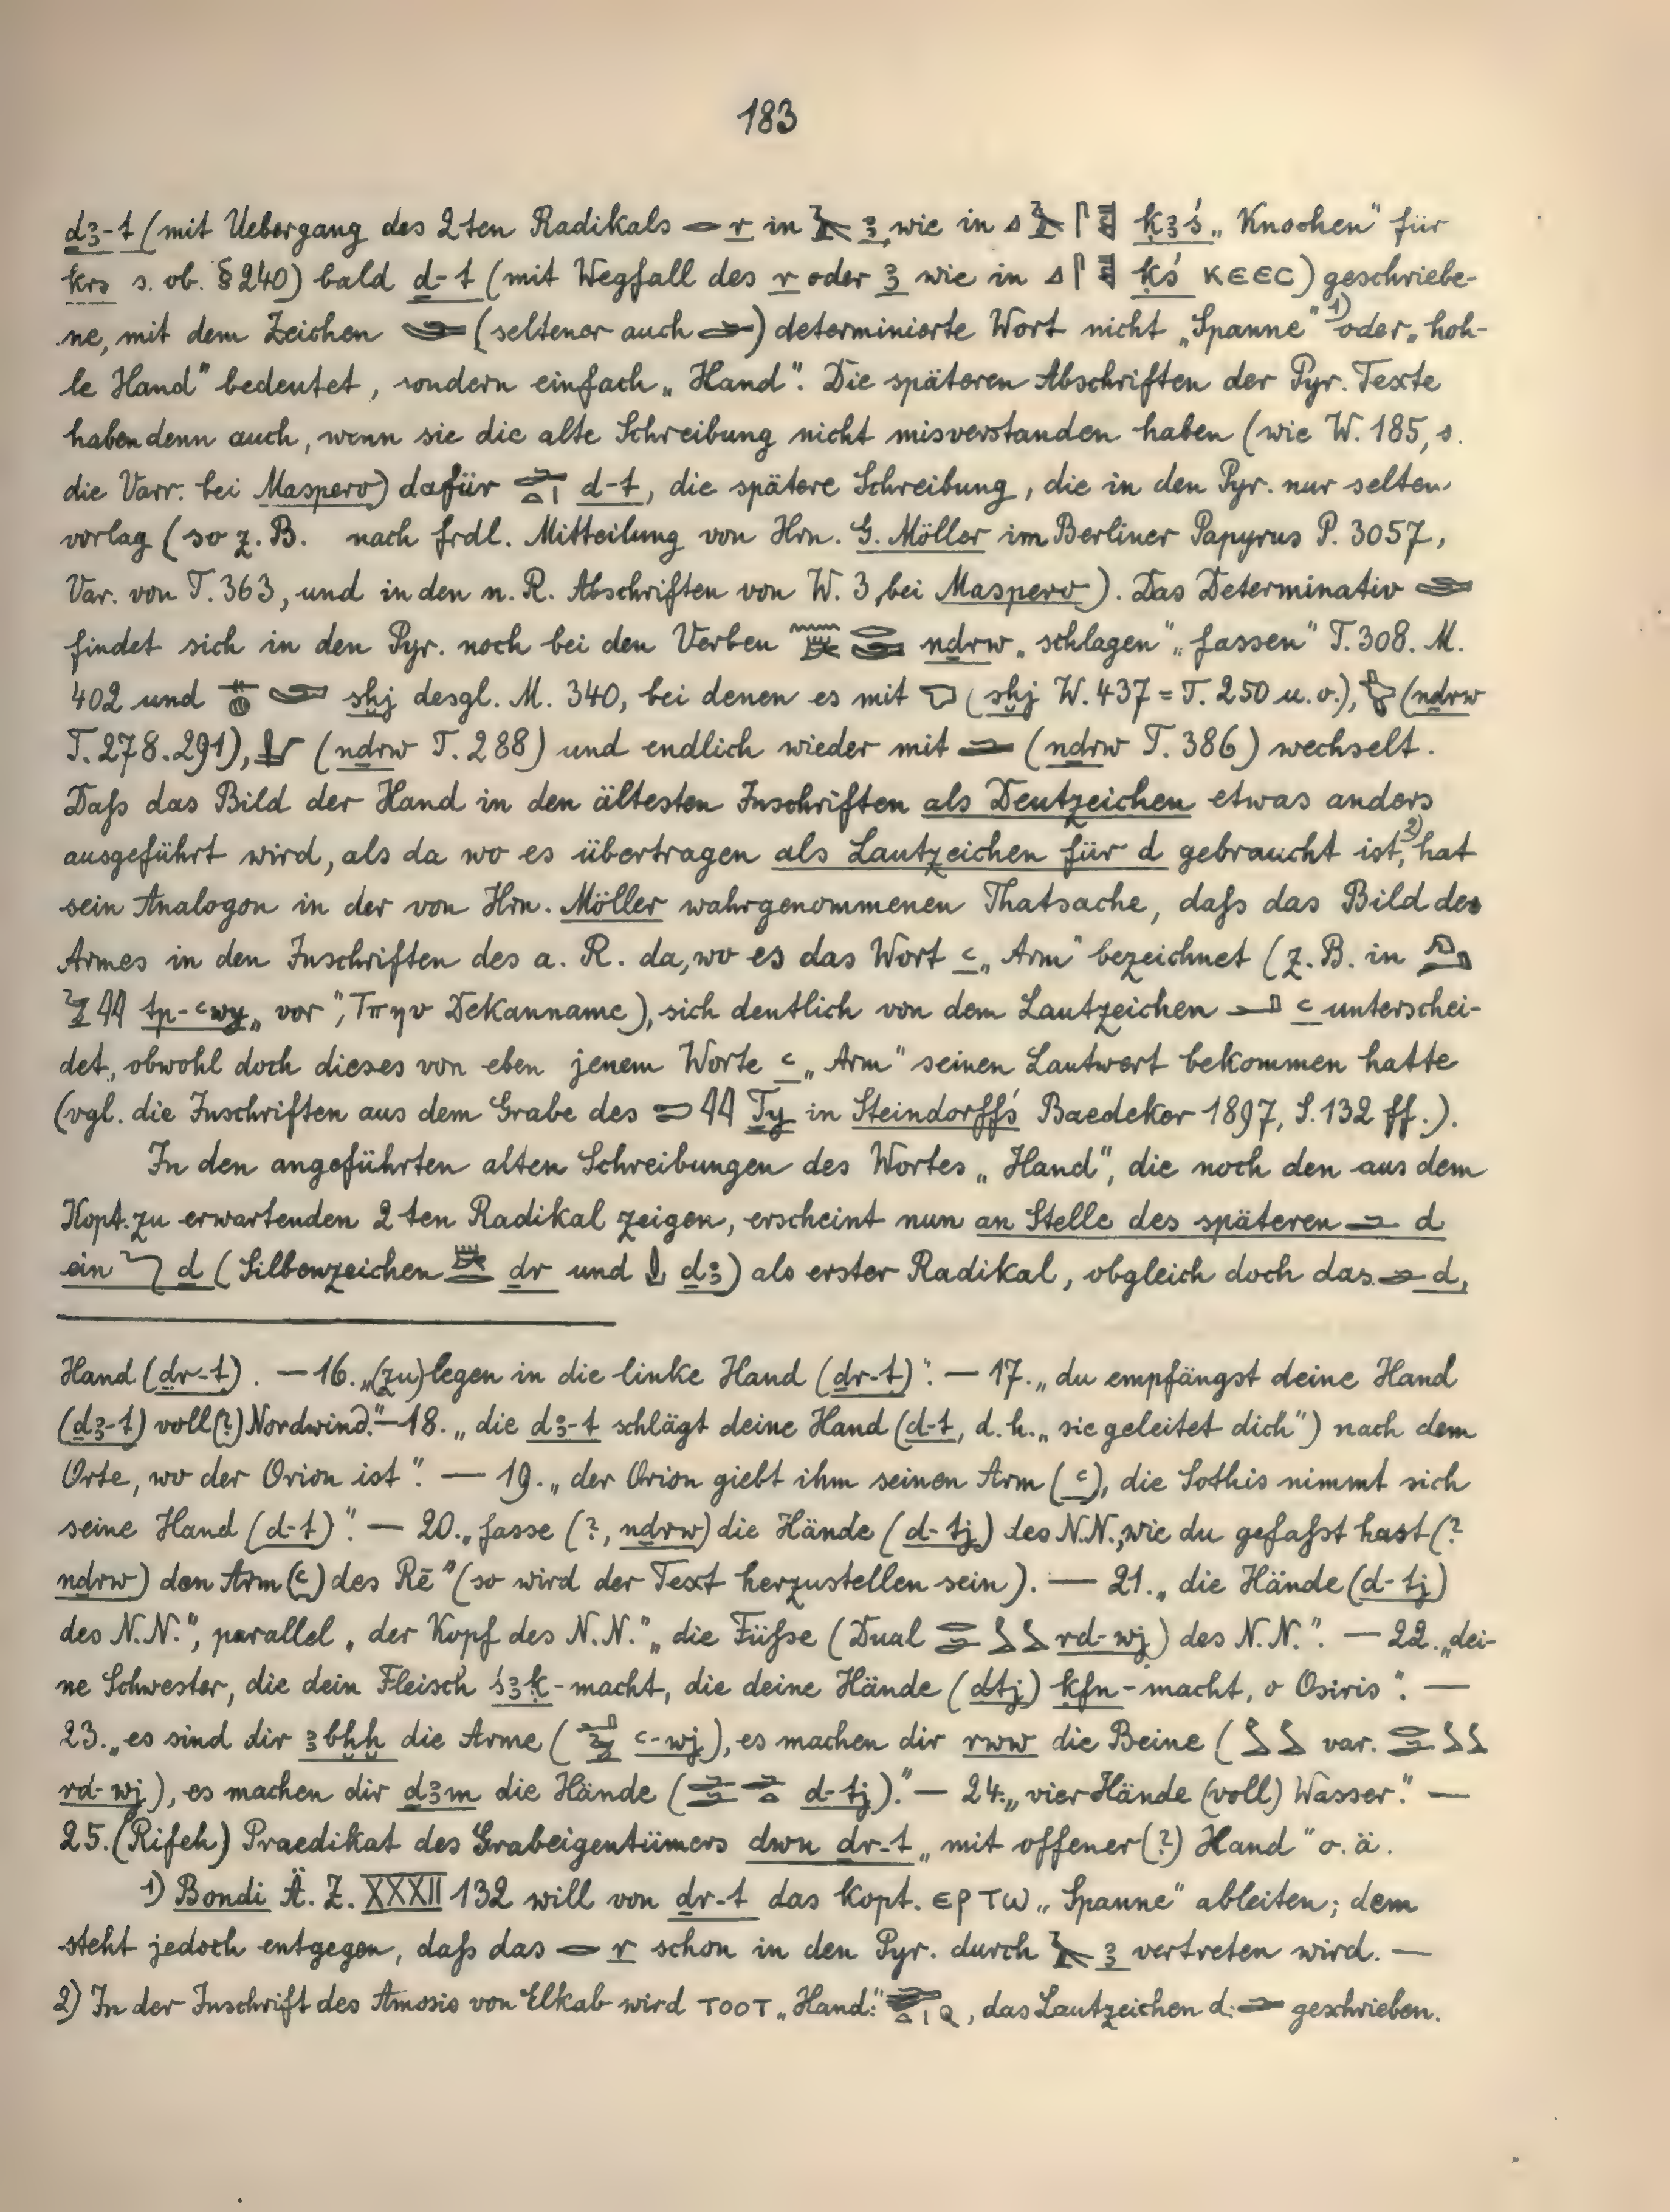 183
ḏꜣ-t (mit Uebergang des 2ten Radikals 𓂋 r in 𓄿 ꜣ, wie in 𓈎𓄿𓋴 ḳꜣś „Knochen" für
ḳrs s. ob. §240) bald ḏ-t (mit Wegfall des r oder ꜣ wie in 𓈎𓋴 ḳś ⲔⲈⲈⲤ) geschriebe-
ne, mit dem Zeichen (seltener auch 𓂧) determinierte Wort nicht „Spanne" 1) oder „hoh-
le Hand" bedeutet, sondern einfach „Hand". Die späteren Abschriften der Pyr. Texte
haben denn auch, wenn sie die alte Schreibung nicht misverstanden haben (wie W. 185, s.
die Varr. bei Maspero) dafür 𓂧𓏏𓏤 d-t, die spätere Schreibung, die in den Pyr. nur selten
vorlag (so z. B. nach frdl. Mitteilung von Hrn. G. Möller im Berliner Papyrus P. 3057,
Var. von T. 363, und in den n. R. Abschriften von W. 3 bei Maspero). Das Determinativ
findet sich in den Pyr. noch bei den Verben nḏrw „schlagen" „fassen" T. 308. M.
402 und 𓋴𓐍 sḫj desgl. M. 340, bei denen es mit (sḫj W. 437 = T. 250 u. o.), (nḏrw
T. 278. 291), (nḏrw T. 288) und endlich wieder mit 𓂧 (nḏrw T. 386) wechselt.
Daſs das Bild der Hand in den ältesten Inschriften als Deutzeichen etwas anders
ausgeführt wird, als da wo es übertragen als Lautzeichen für d gebraucht ist, 2) hat
sein Analogon in der von Hrn. Möller wahrgenommenen Thatsache, daſs das Bild des
Armes in den Inschriften des a. R. da, wo es das Wort ꜥ „Arm" bezeichnet (z. B. in
𓅱𓇌 tp-ꜥwy „vor", Τπηυ Dekanname), sich deutlich von dem Lautzeichen 𓂝 ꜥ unterschei-
det, obwohl doch dieses von eben jenem Worte ꜥ „Arm" seinen Lautwert bekommen hatte
(vgl. die Inschriften aus dem Grabe des 𓍿𓇌 Ṯy in Steindorff's Baedeker 1897, S. 132 ff.).
In den angeführten alten Schreibungen des Wortes „Hand", die noch den aus dem
Kopt. zu erwartenden 2ten Radikal zeigen, erscheint nun an Stelle des späteren 𓂧 d
ein 𓆓 ḏ (Silbenzeichen ḏr und 𓍑 ḏꜣ) als erster Radikal, obgleich doch das 𓂧 d,
Hand (ḏr-t). — 16. „(zu) legen in die linke Hand (ḏr-t)". — 17. „du empfängst deine Hand
(ḏꜣ-t) voll(?) Nordwind." — 18. „die ḏꜣ-t schlägt deine Hand (d-t, d. h. „sie geleitet dich") nach dem
Orte, wo der Orion ist". — 19. „der Orion giebt ihm seinen Arm (ꜥ), die Sothis nimmt sich
seine Hand (d-t)". — 20. „fasse (?, nḏrw) die Hände (d-tj) des N.N., wie du gefaſst hast (?
nḏrw) den Arm (ꜥ) des Rē" (so wird der Text herzustellen sein). — 21. „die Hände (d-tj)
des N.N.", parallel „der Kopf des N.N." „die Füſse (Dual 𓂋𓂧𓃀𓃀 rd-wj) des N.N.". — 22. „dei-
ne Schwester, die dein Fleisch śꜣḳ-macht, die deine Hände (dtj) kfn-macht, o Osiris". —
23. „es sind dir ꜣbḫḫ die Arme (ꜥ-wj), es machen dir rww die Beine (𓃀𓃀 var. 𓂋𓂧𓃀𓃀
rd-wj), es machen dir dꜣm die Hände (d-tj)." — 24. „vier Hände (voll) Wasser." —
25. (Rifeh) Praedikat des Grabeigentümers dwn ḏr-t „mit offener(?) Hand" o. ä.
1) Bondi Ä. Z. XXXII 132 will von ḏr-t das kopt. ⲈⲢⲦⲰ „Spanne" ableiten; dem
steht jedoch entgegen, daſs das 𓂋 r schon in den Pyr. durch 𓄿 ꜣ vertreten wird. —
2) In der Inschrift des Amosis von Elkab wird ⲦⲞⲞⲦ „Hand:" , das Lautzeichen d: 𓂧 geschrieben.